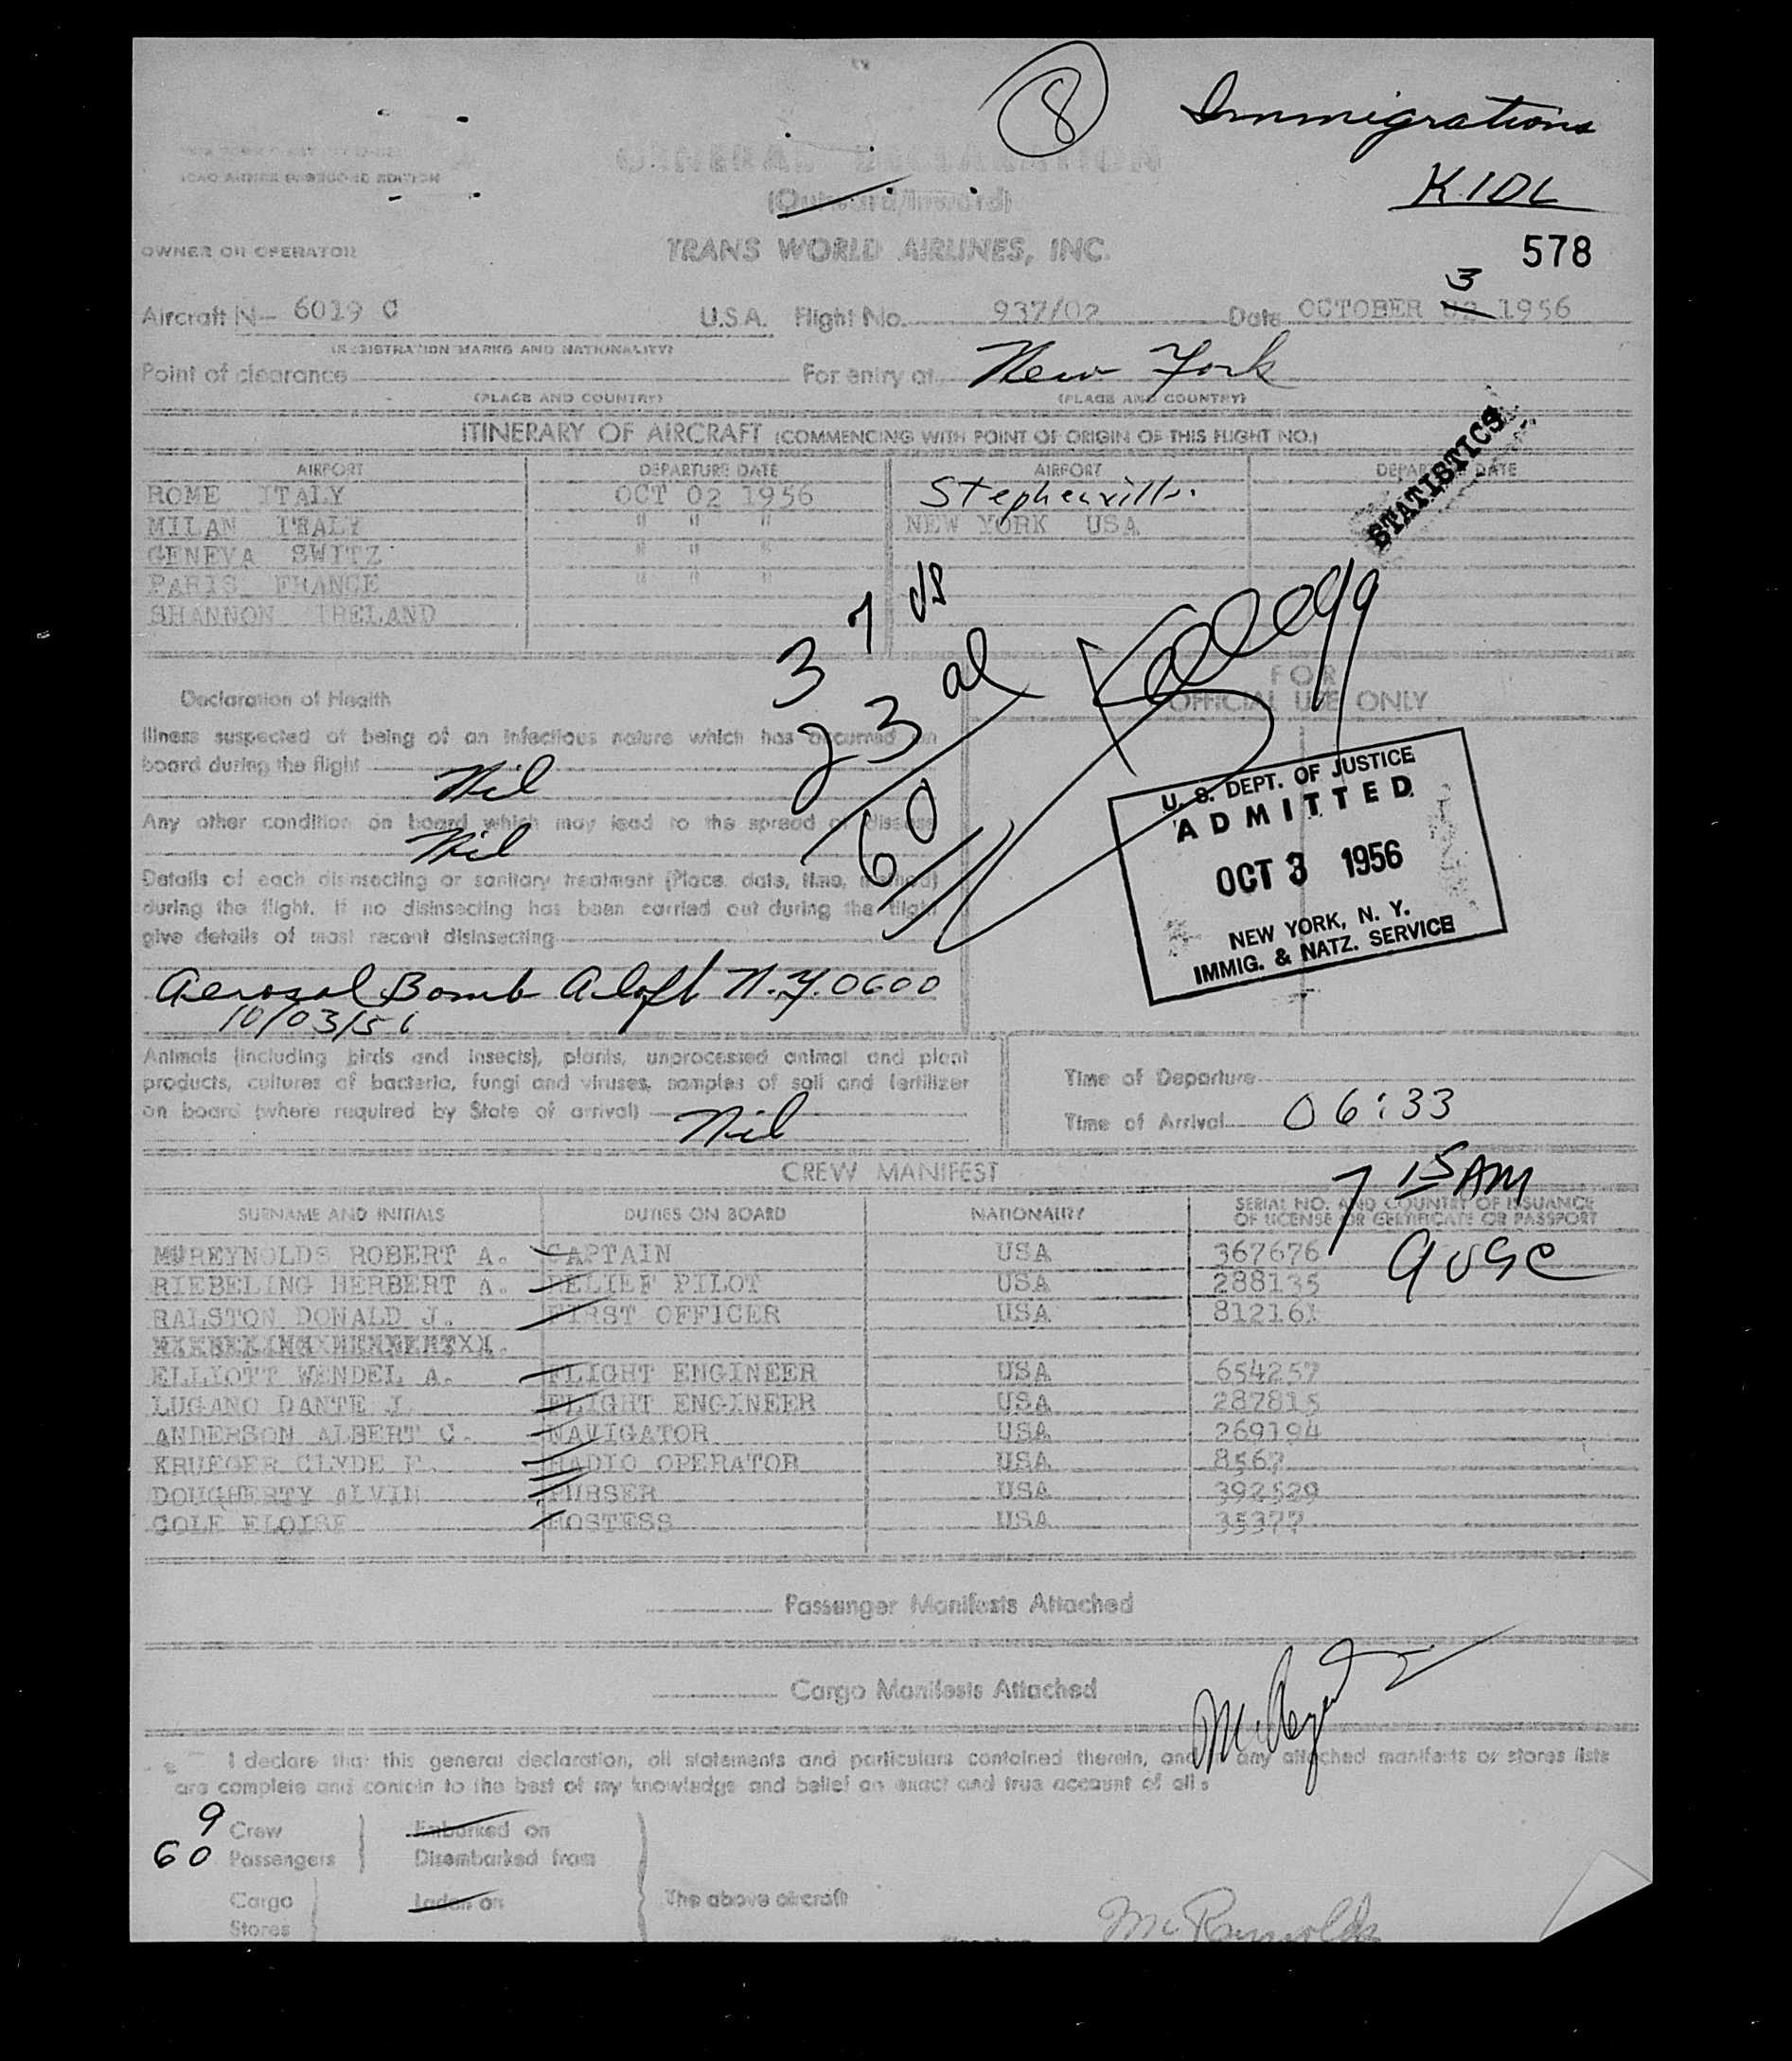 8
Immigrations
KIDL
578
GENERAL DECLARATION
(Outward/Inward)
OWNER OR OPERATOR
TRANS WORLD AIRLINES, INC.
3
Aircraft N- 6019 C U.S.A. Flight No. 937/02 Date OCTOBER 02 1956
(REGISTRATION MARKS AND NATIONALITY)
Point of clearance For entry at New York
(PLACE AND COUNTRY) (PLACE AND COUNTRY)
ITINERARY OF AIRCRAFT (COMMENCING WITH POINT OF ORIGIN OF THIS FLIGHT NO.)
AIRPORT DEPARTURE DATE AIRPORT DEPARTURE DATE
STATISTICS
ROME ITALY OCT 02 1956 Stephenville
MILAN ITALY " " " NEW YORK USA
GENEVA SWITZ " " "
PARIS FRANCE " " "
SHANNON IRELAND
37 us
23 al
60
Kellogg
FOR
OFFICIAL USE ONLY
Declaration of Health
Illness suspected of being of an infectious nature which has occurred on
board during the flight Nil
Any other condition on board which may lead to the spread of disease
Nil
Details of each disinsecting or sanitary treatment (Place, date, time, method)
during the flight. If no disinsecting has been carried out during the flight
give details of most recent disinsecting
Aerosol Bomb Aloft N.Y. 0600
10/03/56
U. S. DEPT. OF JUSTICE
ADMITTED
OCT 3 1956
NEW YORK, N. Y.
IMMIG. & NATZ. SERVICE
Animals (including birds and insects), plants, unprocessed animal and plant
products, cultures of bacteria, fungi and viruses, samples of soil and fertilizer
on board (where required by State of arrival) Nil
Time of Departure
Time of Arrival 06:33
7 15 AM
9 USC
CREW MANIFEST
SURNAME AND INITIALS DUTIES ON BOARD NATIONALITY SERIAL NO. AND COUNTRY OF ISSUANCE
OF LICENSE OR CERTIFICATE OR PASSPORT
MCREYNOLDS ROBERT A. CAPTAIN USA 367676
RIEBELING HERBERT A. RELIEF PILOT USA 288135
RALSTON DONALD J. FIRST OFFICER USA 812161
ELLIOTT WENDEL A. FLIGHT ENGINEER USA 654257
LUGANO DANTE J FLIGHT ENGINEER USA 287815
ANDERSON ALBERT C. NAVIGATOR USA 269194
KRUEGER CLYDE F. RADIO OPERATOR USA 8567
DOUGHERTY ALVIN PURSER USA 392529
COLE ELOISE HOSTESS USA 35377
Passenger Manifests Attached
Cargo Manifests Attached
I declare that this general declaration, all statements and particulars contained therein, and any attached manifests or stores lists
are complete and contain to the best of my knowledge and belief an exact and true account of all:
9 Crew Embarked on
60 Passengers Disembarked from
Cargo Laden on The above aircraft
Stores
McReynolds